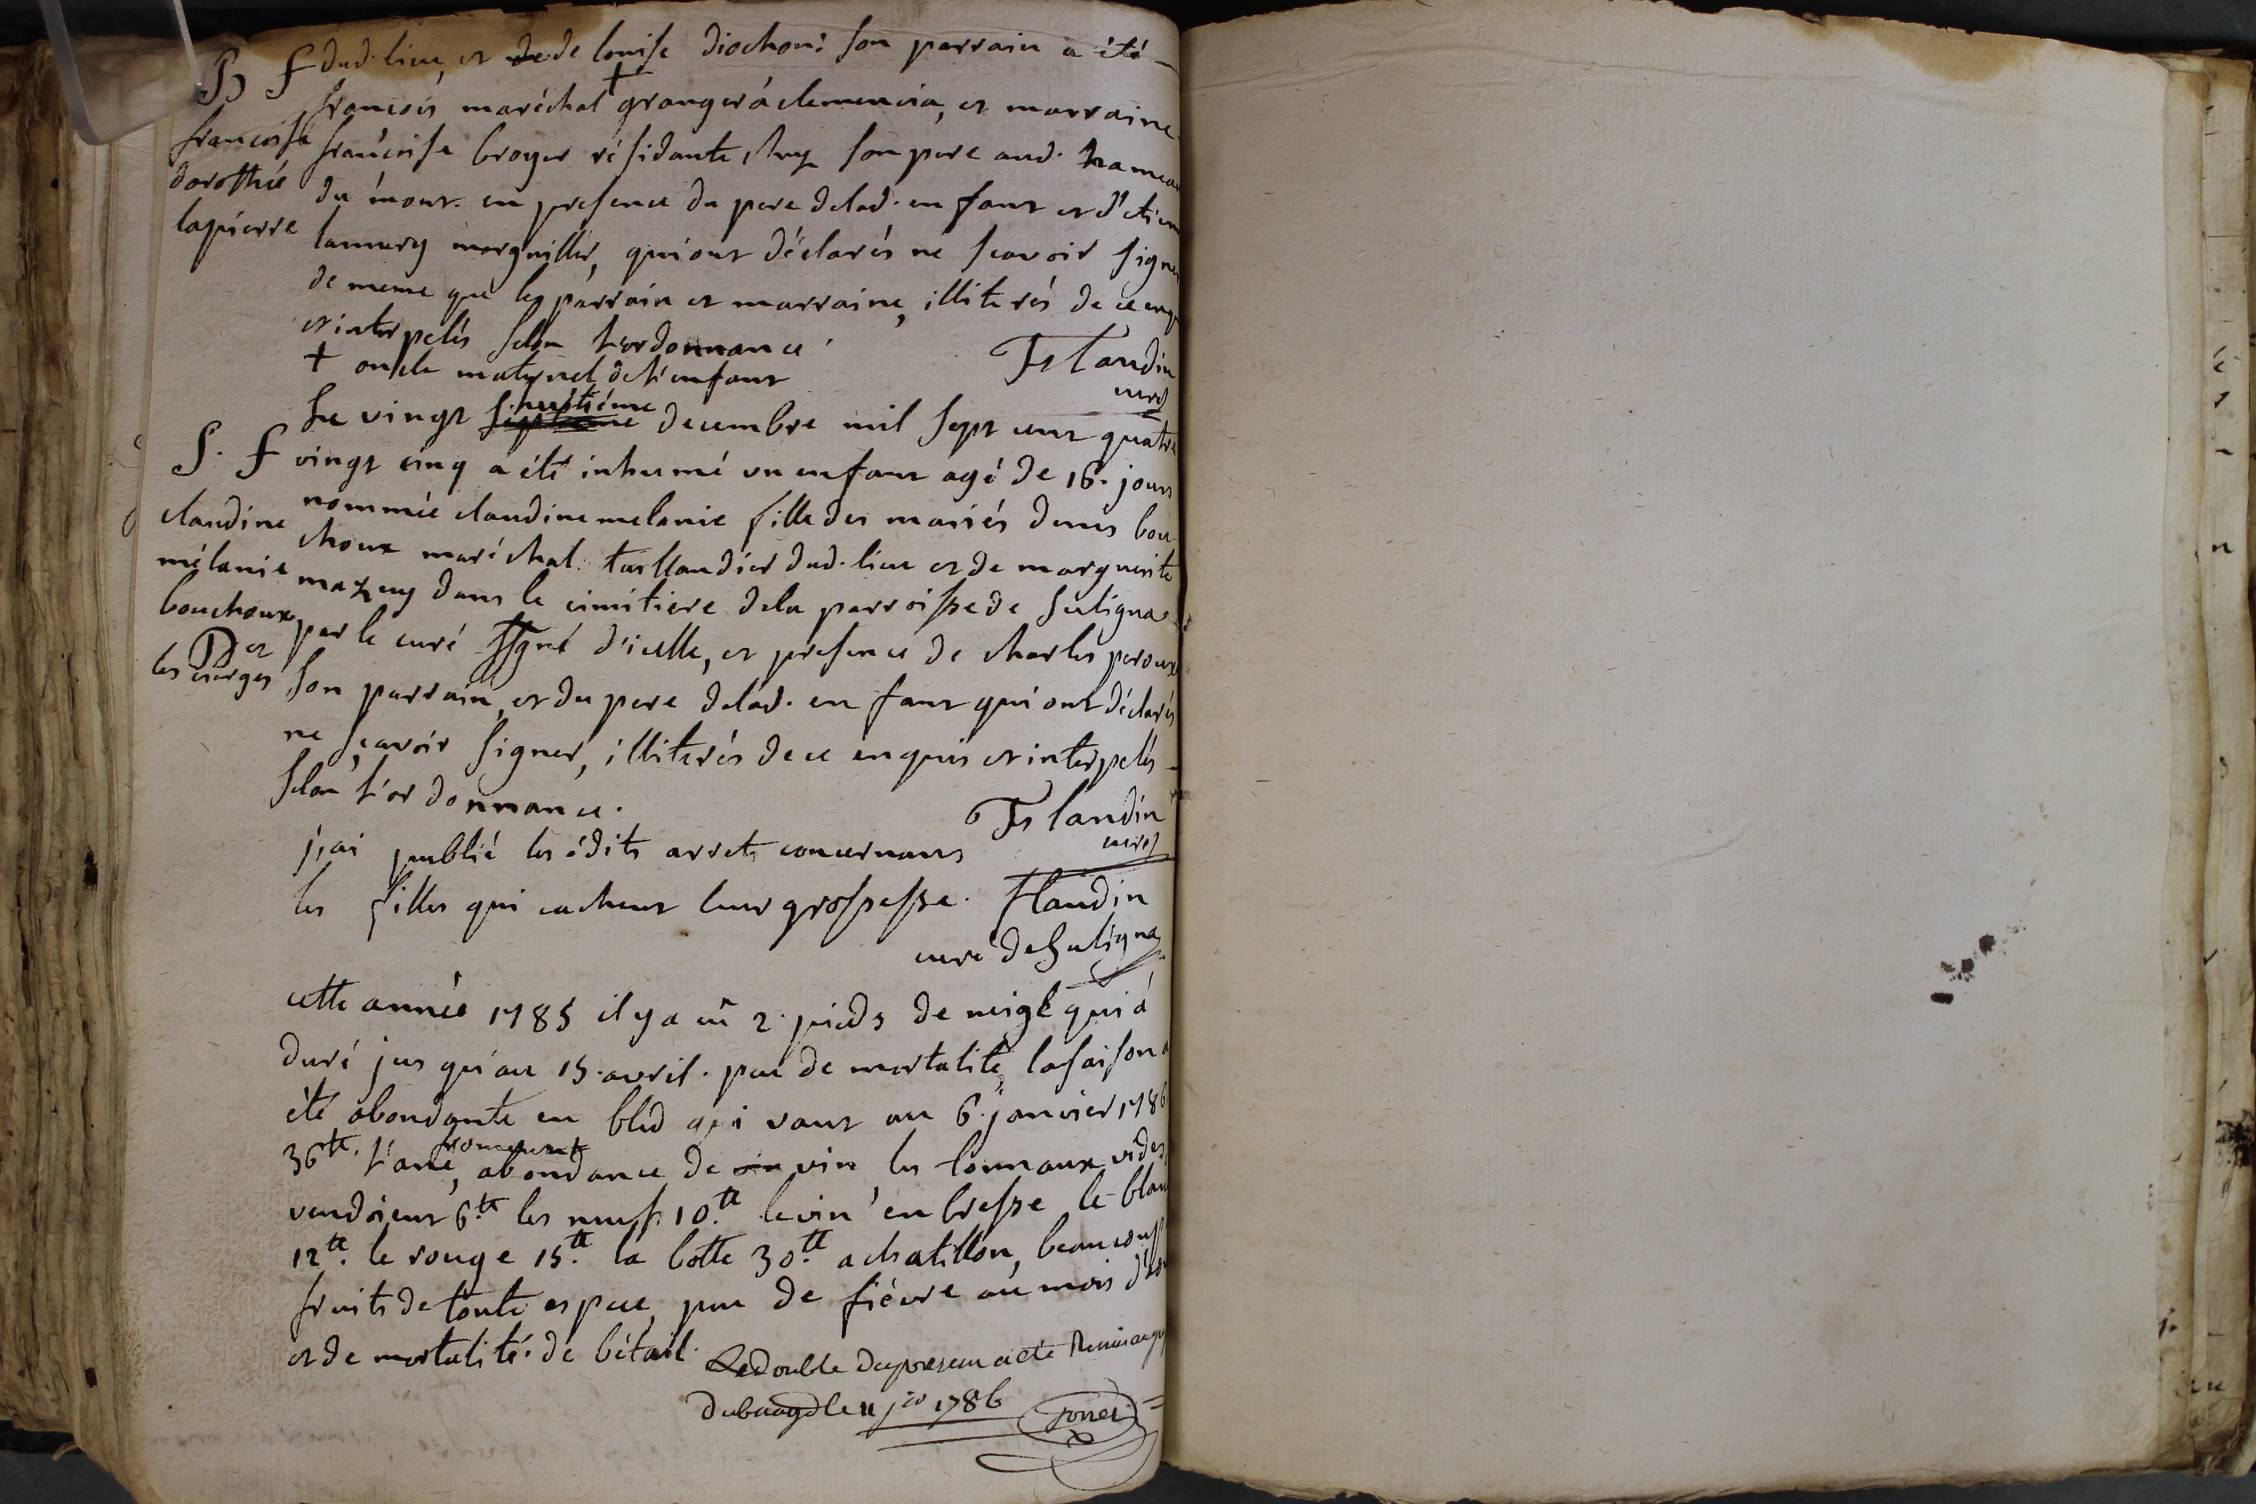 B f
françoise
dorothée
lapierre
dud. lieu, et de de louise diochon: son parrain a été
francois maréchal + granger á clemencia, et marraine
francoise broyer résidante chez son pere aud. hameau
du mont. en presence du pere de lad. enfant et d'etien
lamury marguiller, qui ont déclarés ne scavoir signer
de meme que les parrain et marraine, illiterés de ce enq
et interpelés selon l'ordonnance
+ oncle maternel de l'enfant
Flandin
curé
S. f
claudine
mélanie
bouchoux
D et
les cierges
Le vingt septieme huitiéme decembre mil sept cent quatre
vingt cinq a été inhumé un enfant agé de 16. jours
nommée claudine melanie fille des mariés denis bou
choux maréchal taillandier dud. lieu et de marguerite
mazuy dans le cimitiere de la parroisse de suligna
par le curé ssigné d'icelle, et presence de charles peroux
son parrain, et du pere de lad. enfant qui ont déclarés
ne scavoir signer, illiterés de ce enquis et interpelés
selon l'ordonnance.
Flandin
curé
j'ai publié les édits arrets concernans
les filles qui cachent leur grossesse. Flandin
curé de Suligna
cette année 1785 il y a eû 2. pieds de neige qui á
duré jusqu'au 15. avril. peu de mortalité, la saison a
été abondante en bled qui vaut au 6. janvier 1786
36 tt. l'ané froment, abondance de vin les tonnaux vides
vendoient 6 tt les neufs 10. tt le vin en bresse le blanc
12 tt. le rouge 15. tt la botte 30. tt a chatillon, beaucoup
fruits de toute espece, peu de fiévre au mois d'
et de mortalité de bétail.
Le double du present acte Remis au
du baage le 11 jer 1786